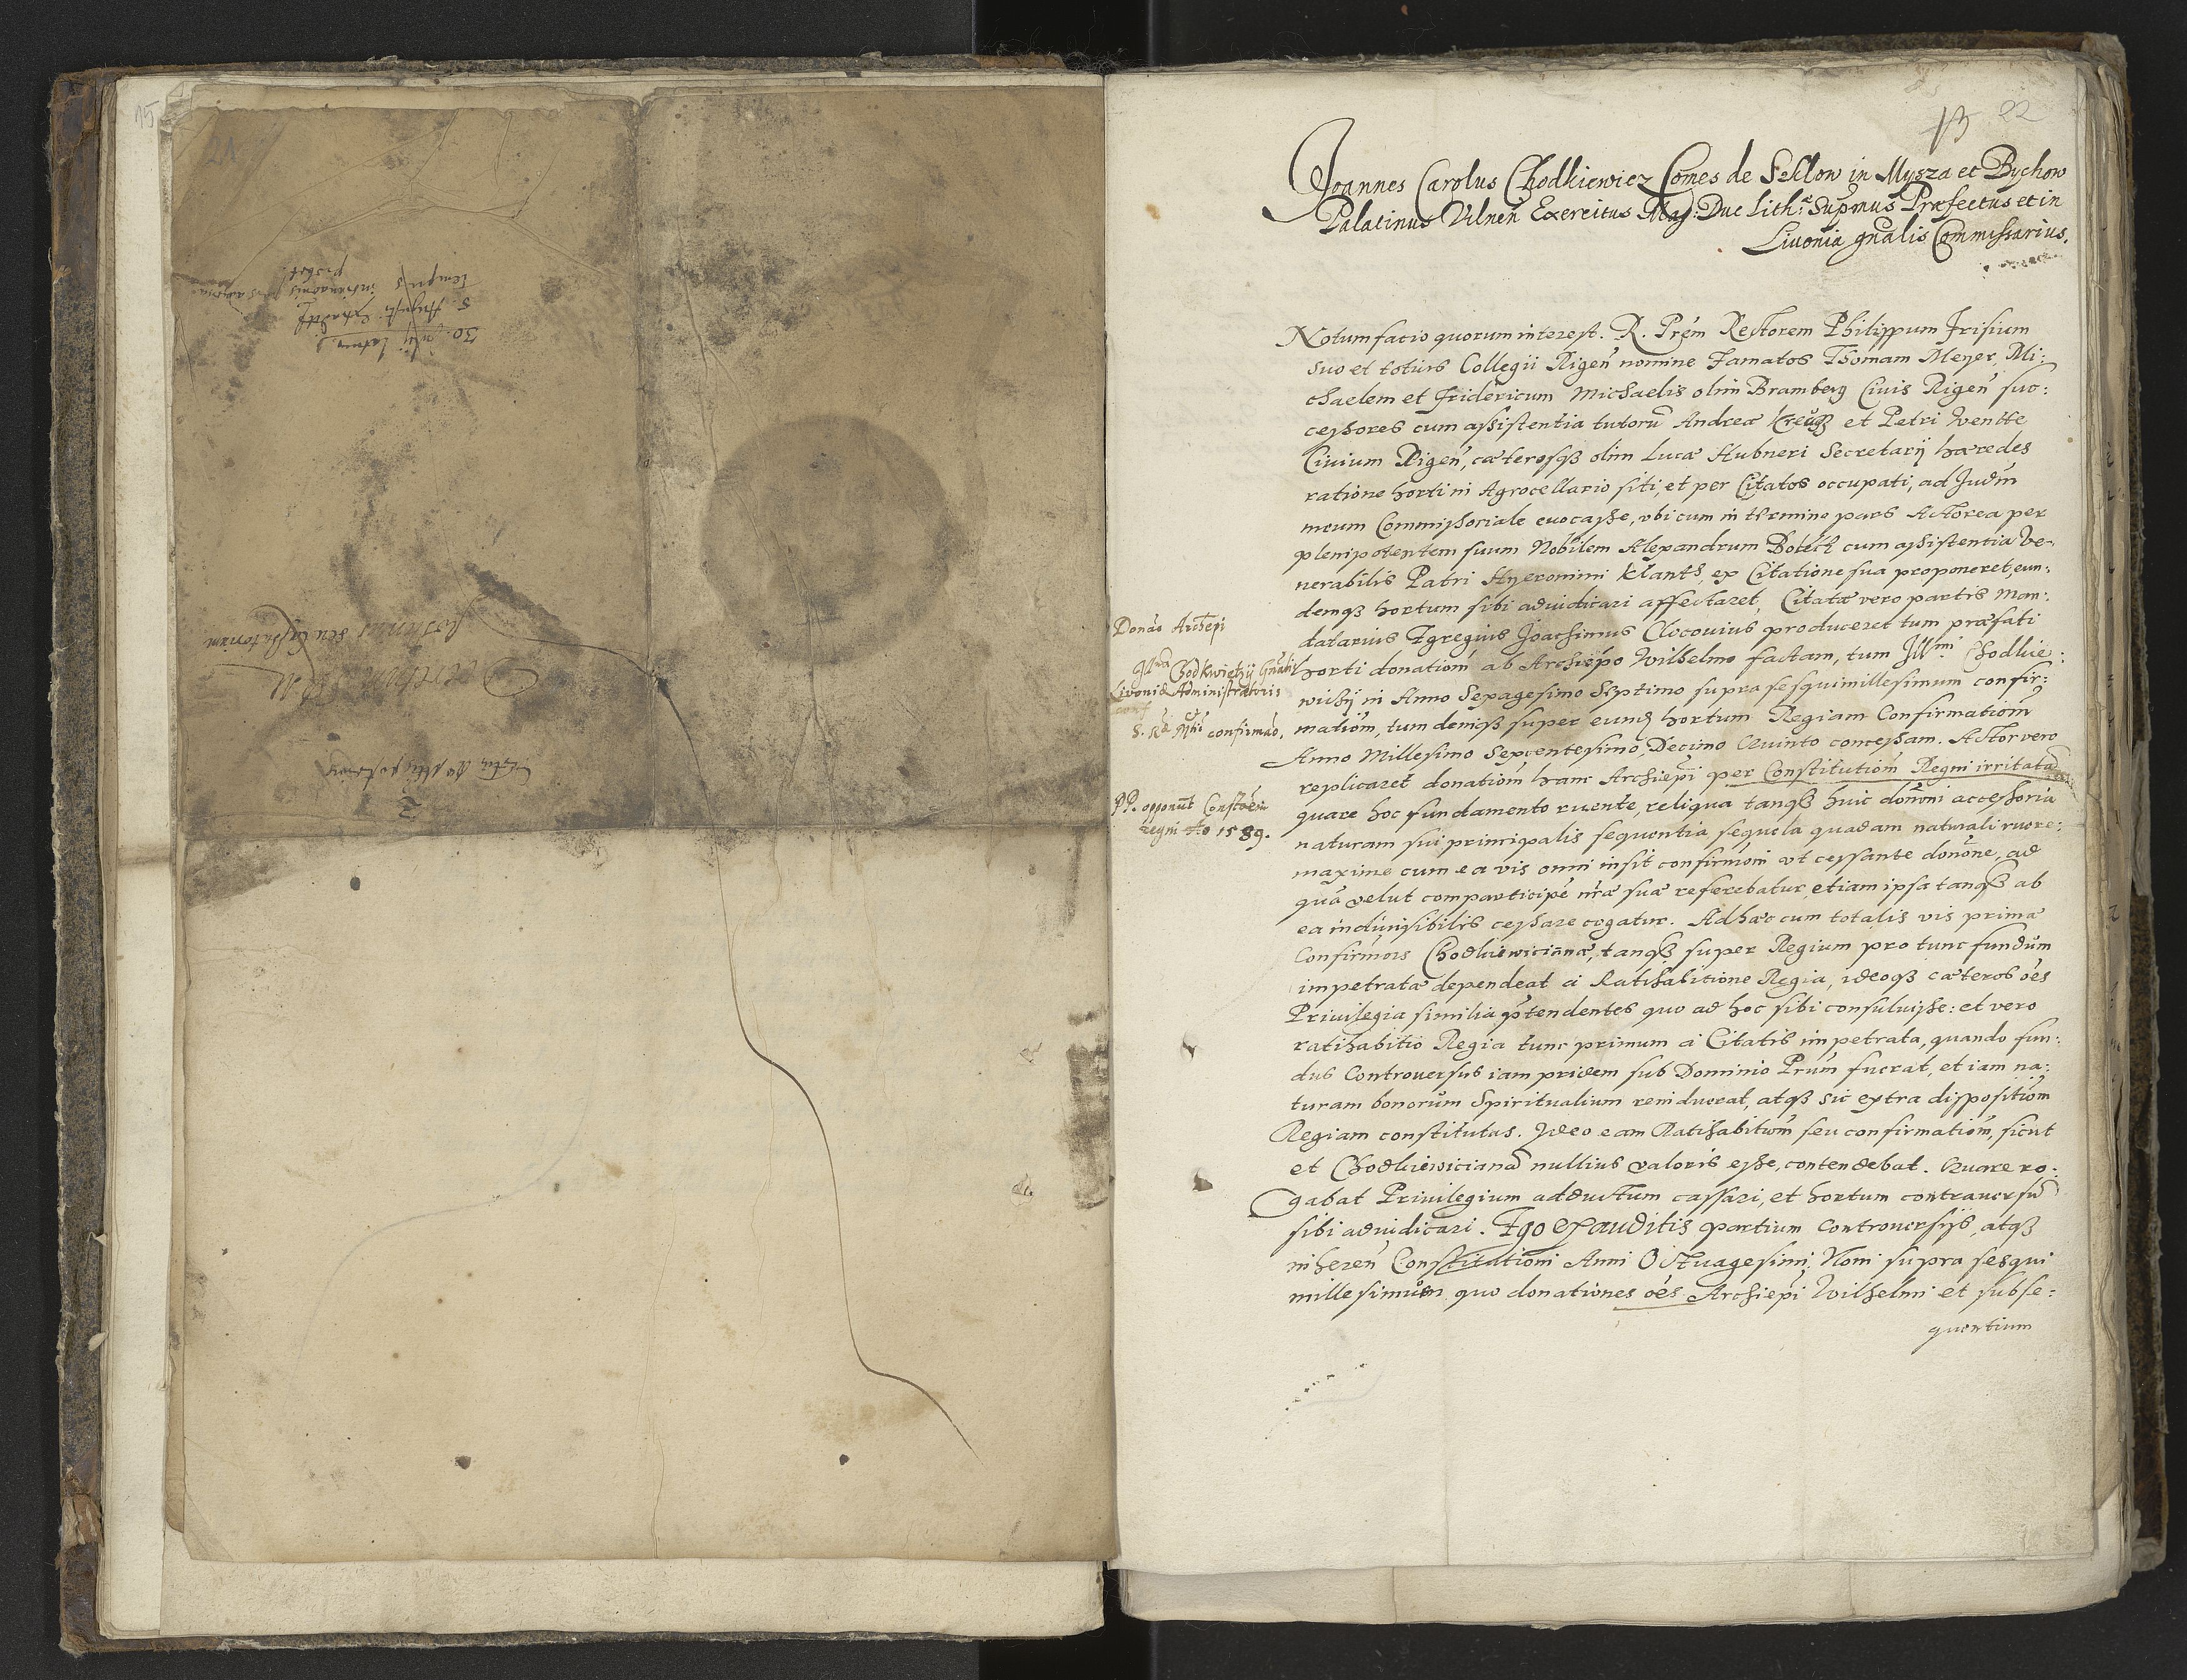 15
21
Joannes Carolus Chodkiewicz Comes de Scklow in Mysza et Bychow
Palatinus Vilnen̄ Exercitus Mag: Duc Lith:ę Supm̄us Præfectus et in
Liuonia gn̄alis Commissarius.
22
Notum facio quorum interest. R. Prem̄ Rectorem Philippum Frisium
suo et totius Collegii Rigen̄ nomine Famatos Thomam Meyer, Mi:
chaelem et Fridericum Michaelis olim Bramberg Ciuis Rigen̄ suc:
cessores cum assistentia tutorū Andreæ Kreug et Petri Wentte
Ciuium Rigen̄, cæterosqȝ olim Lucæ Hubneri Secretarij hæredes
ratione horti in Agrocellario siti, et per Citatos occupati, ad Judm̄
meum Commissoriale euocasse, vbi cum in termino pars Actorea per
plenipotentem suum Nobilem Alexandrum Boteck cum assistentia Ve-
nerabilis Patri Hyeronimi Klants, ex Citatione sua proponeret, eun:
demqȝ hortum sibi adiudicari affectaret, Citatæ vero partis Man:
datarius Egregius Joachimus Clocouius produceret tum præfati
horti donationm̄ ab Archiepo Wilhelmo factam, tum Jllm̄i Chodkie:
wichij in Anno Sexagesimo Septimo supra sesquimillesimum confir:
mationm̄, tum deniqȝ super eundȝ hortum Regiam Confirmationm̄
Anno Millesimo Sexcentesimo, Decimo Quinto concessam. Actor vero
replicaret donationm̄ hanc Archiepi per Constitutionm̄ Regni irritatā
quare hoc fundamento ruente, reliqua tanqȝ huic dononi accessoria
naturam sui principalis sequentia sequela quadam naturali ruere:
maxime cum ea vis omni insit confirmōni vt cessante donōne, ad
quā velut comparticipē nr̄æ suæ referebatur, etiam ipsa tanqȝ ab
ea indiuisibilis cessare cogatur. Ad hæc cum totalis vis primæ
Confirmōis Chodkiewicianæ, tanqȝ super Regium pro tunc fundum
impetratæ dependeat à Ratihabitione Regia, ideoqȝ cæteros oēs
Priuilegia similia prætendentes quo ad hoc sibi consuluisse: et vero
ratihabitio Regia tunc primum à Citatis impetrata, quando fun:
dus Controuersus iam pridem sub Dominio Prum̄ fuerat, et iam na:
turam bonorum Spiritualium reinduerat, atqȝ sic extra dispositionm̄
Regiam constitutus. Jdeo eam Ratihabitionm̄ seu confirmationm̄, sicut
et Chodkiewicianā nullius valoris esse, contendebat. Quare ro:
gabat Priuilegium adductum cassari, et hortum contrauersū
sibi adiudicari. Ego exauditis partium Controuersijs, atqȝ
inheren̄ Constitutioni Anni Octuagesimi Noni supra sesqui
millesimum quo donationes oēs Archiepi Wilhelmi et subse:
quentium
Donaō Archiepi
Illmā Chodkwietzij Gn̄alis
Livoniæ Administratoris
conf
S. Ræ Mtis confirmaō.
PP. opponūt Constōem
regni Ao 1589.
30. Julij
5. Augusti
tempus